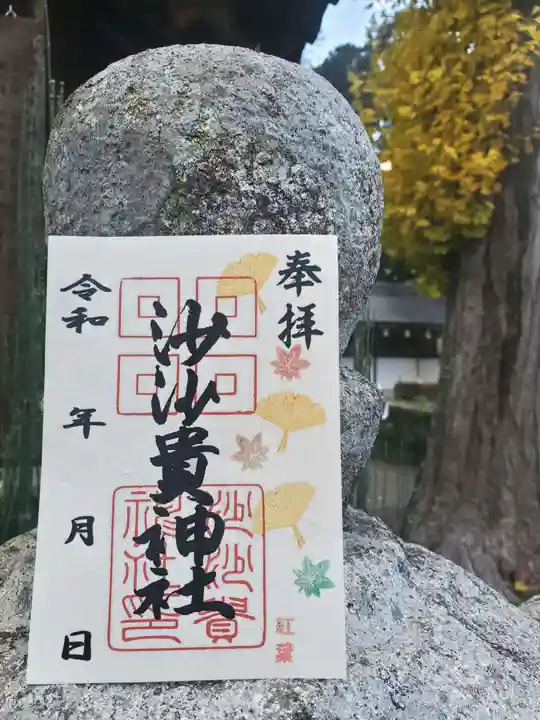 奉拝
沙沙貴神社
沙沙貴
神社印
紅葉
令和 年 月 日